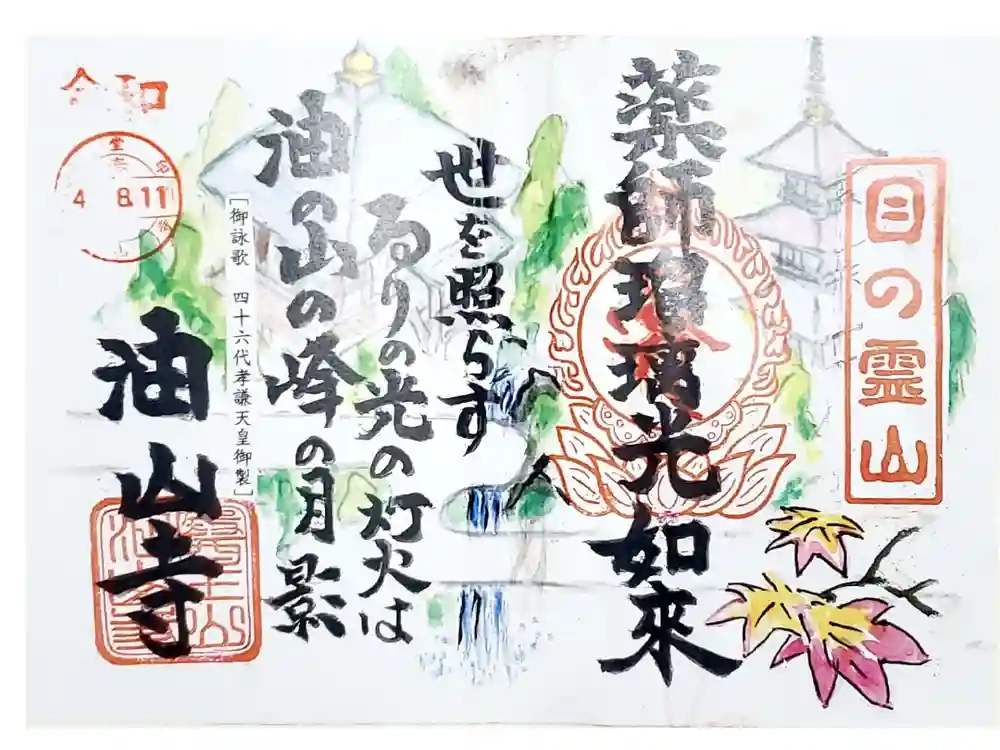 目の霊山
薬師瑠璃光如來
世を照らす
るりの光の灯火は
油の山の峰の月影
[御詠歌 四十六代孝謙天皇御製]
油山寺
令和
4 8.11